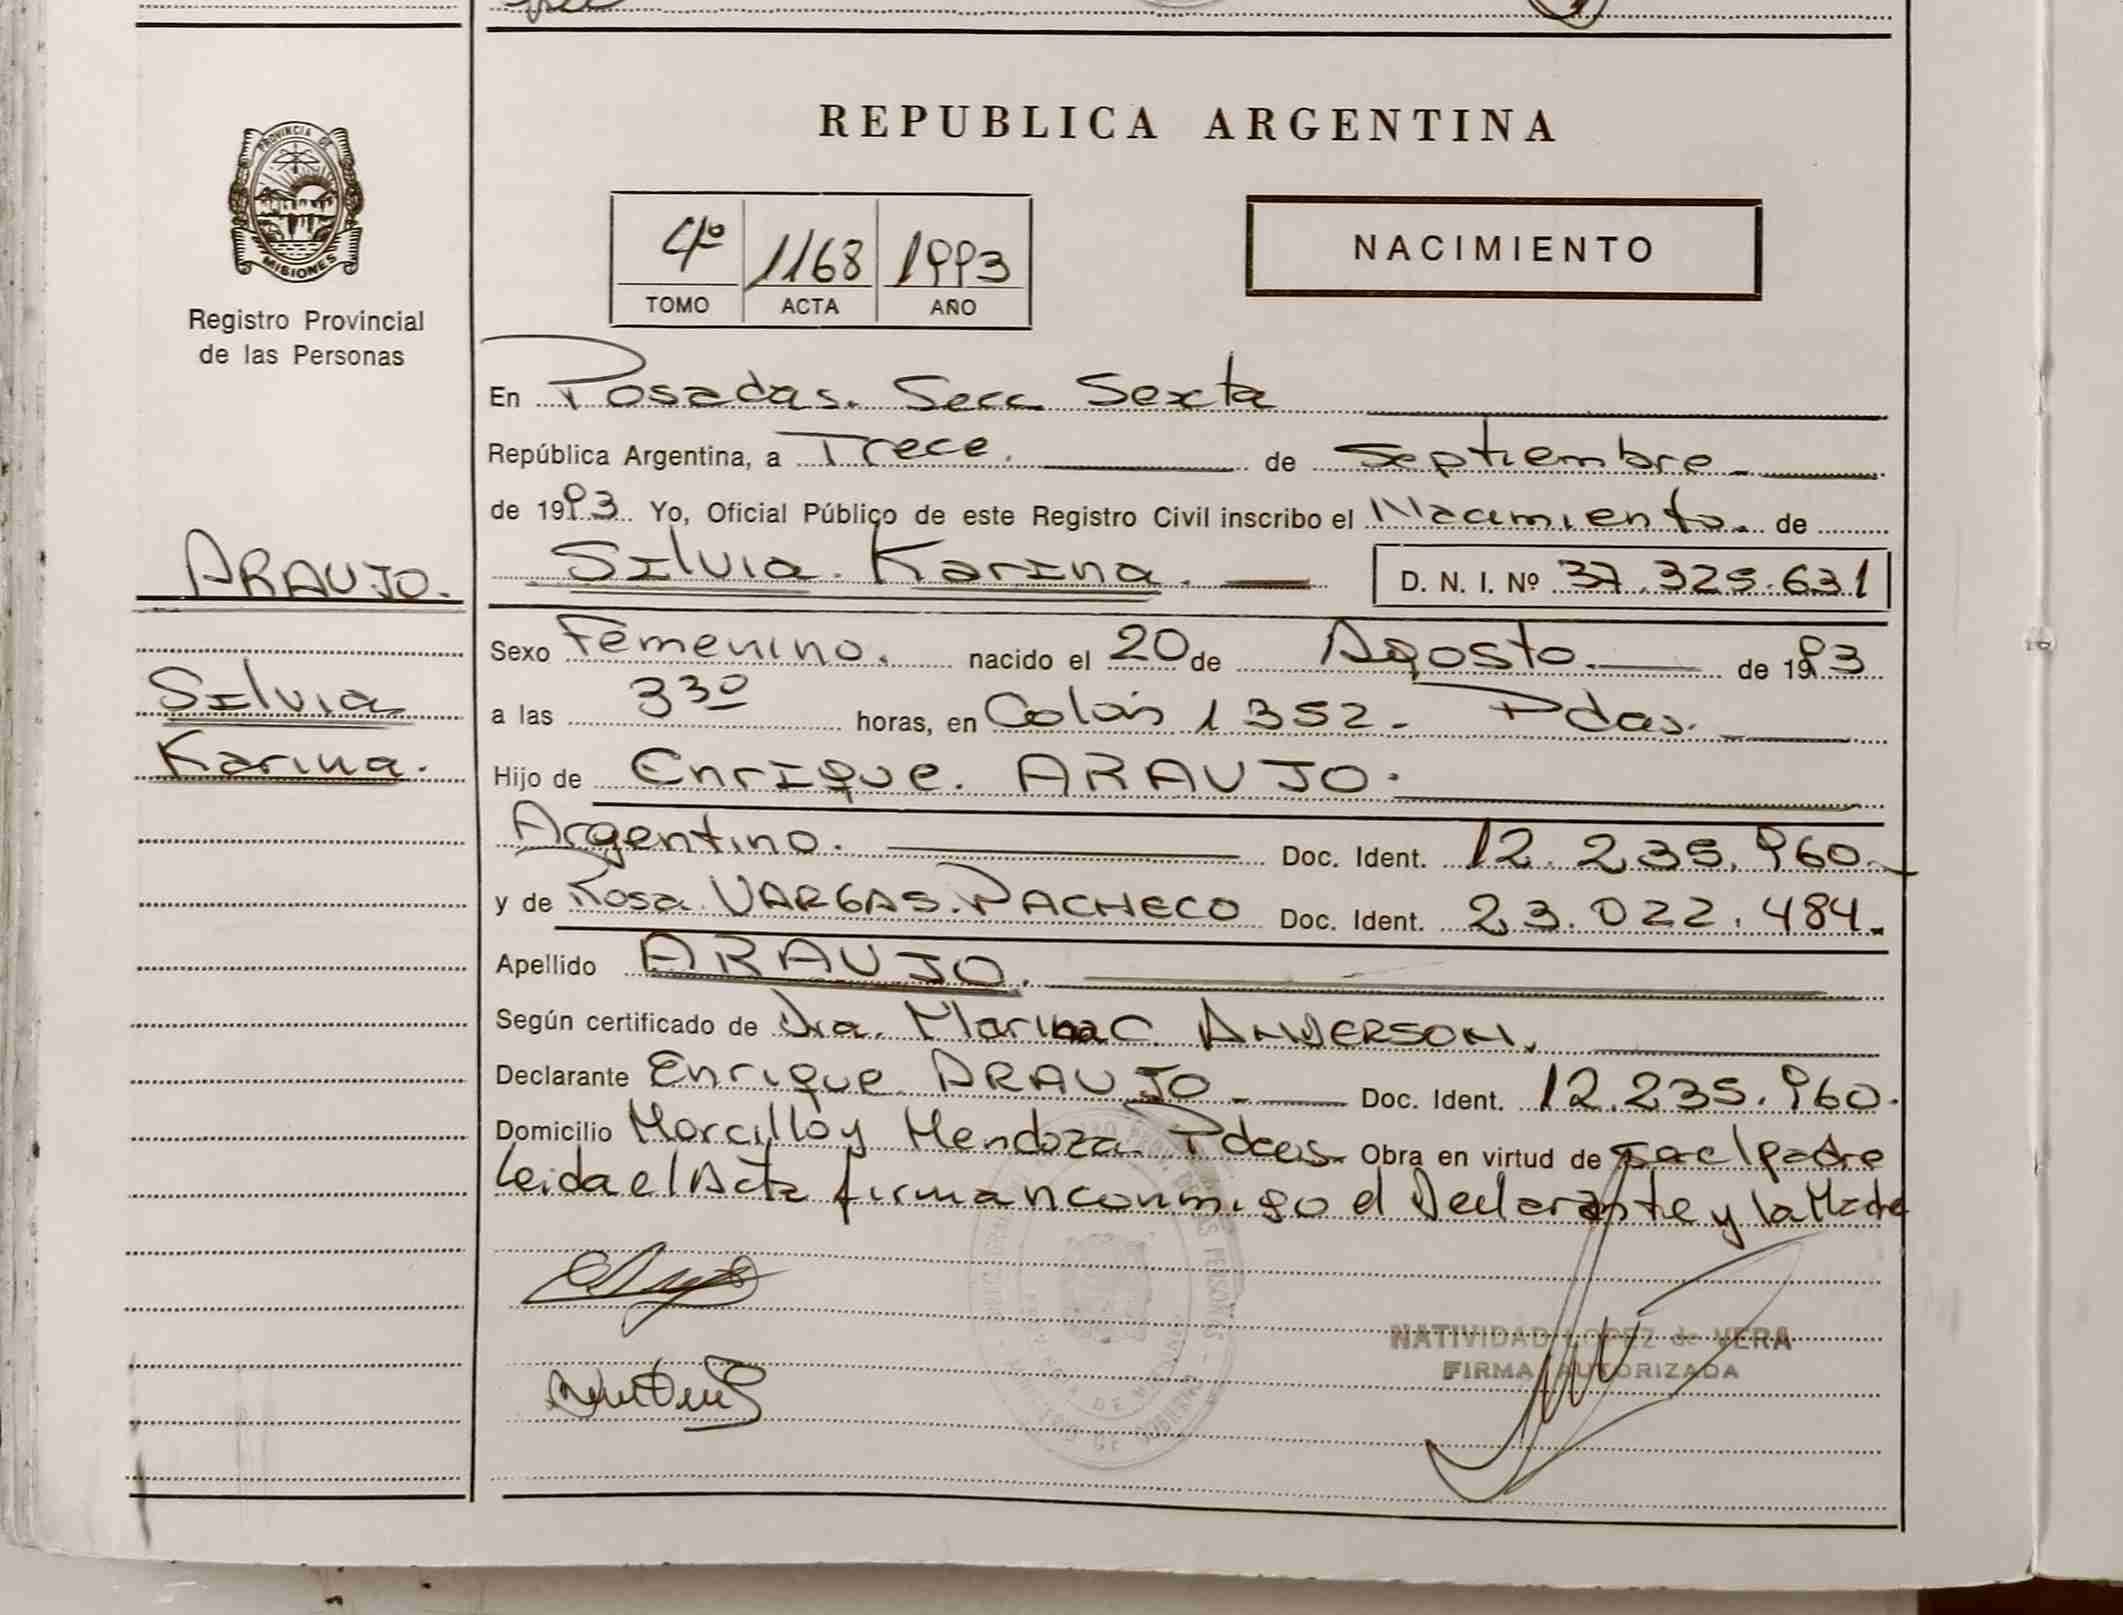 PROVINCIA DE
MISIONES
Registro Provincial
de las Personas
ARAUJO.
Silvia
Karina.
REPUBLICA ARGENTINA
4º 1168 1993
TOMO ACTA AÑO
NACIMIENTO
En Posadas. Secc Sexta
República Argentina, a Trece. de Septiembre
de 1993 Yo, Oficial Público de este Registro Civil inscribo el Nacimiento. de
Silvia. Karina. D. N. I. Nº 37.325.631
Sexo Femenino. nacido el 20 de Agosto. de 1993
a las 3 30 horas, en Colón 1352. Pdas.
Hijo de Enrique. ARAUJO.
Argentino. Doc. Ident. 12.235.960.
y de Rosa VARGAS. PACHECO Doc. Ident. 23.022.484.
Apellido ARAUJO.
Según certificado de Dra. Marina C. ANDERSON.
Declarante Enrique ARAUJO Doc. Ident. 12.235.960.
Domicilio Morcillo y Mendoza Pdas. Obra en virtud de ser el padre
Leida el Acta firman conmigo el Declarante y la Madre
NATIVIDAD LOPEZ de VERA
FIRMA AUTORIZADA